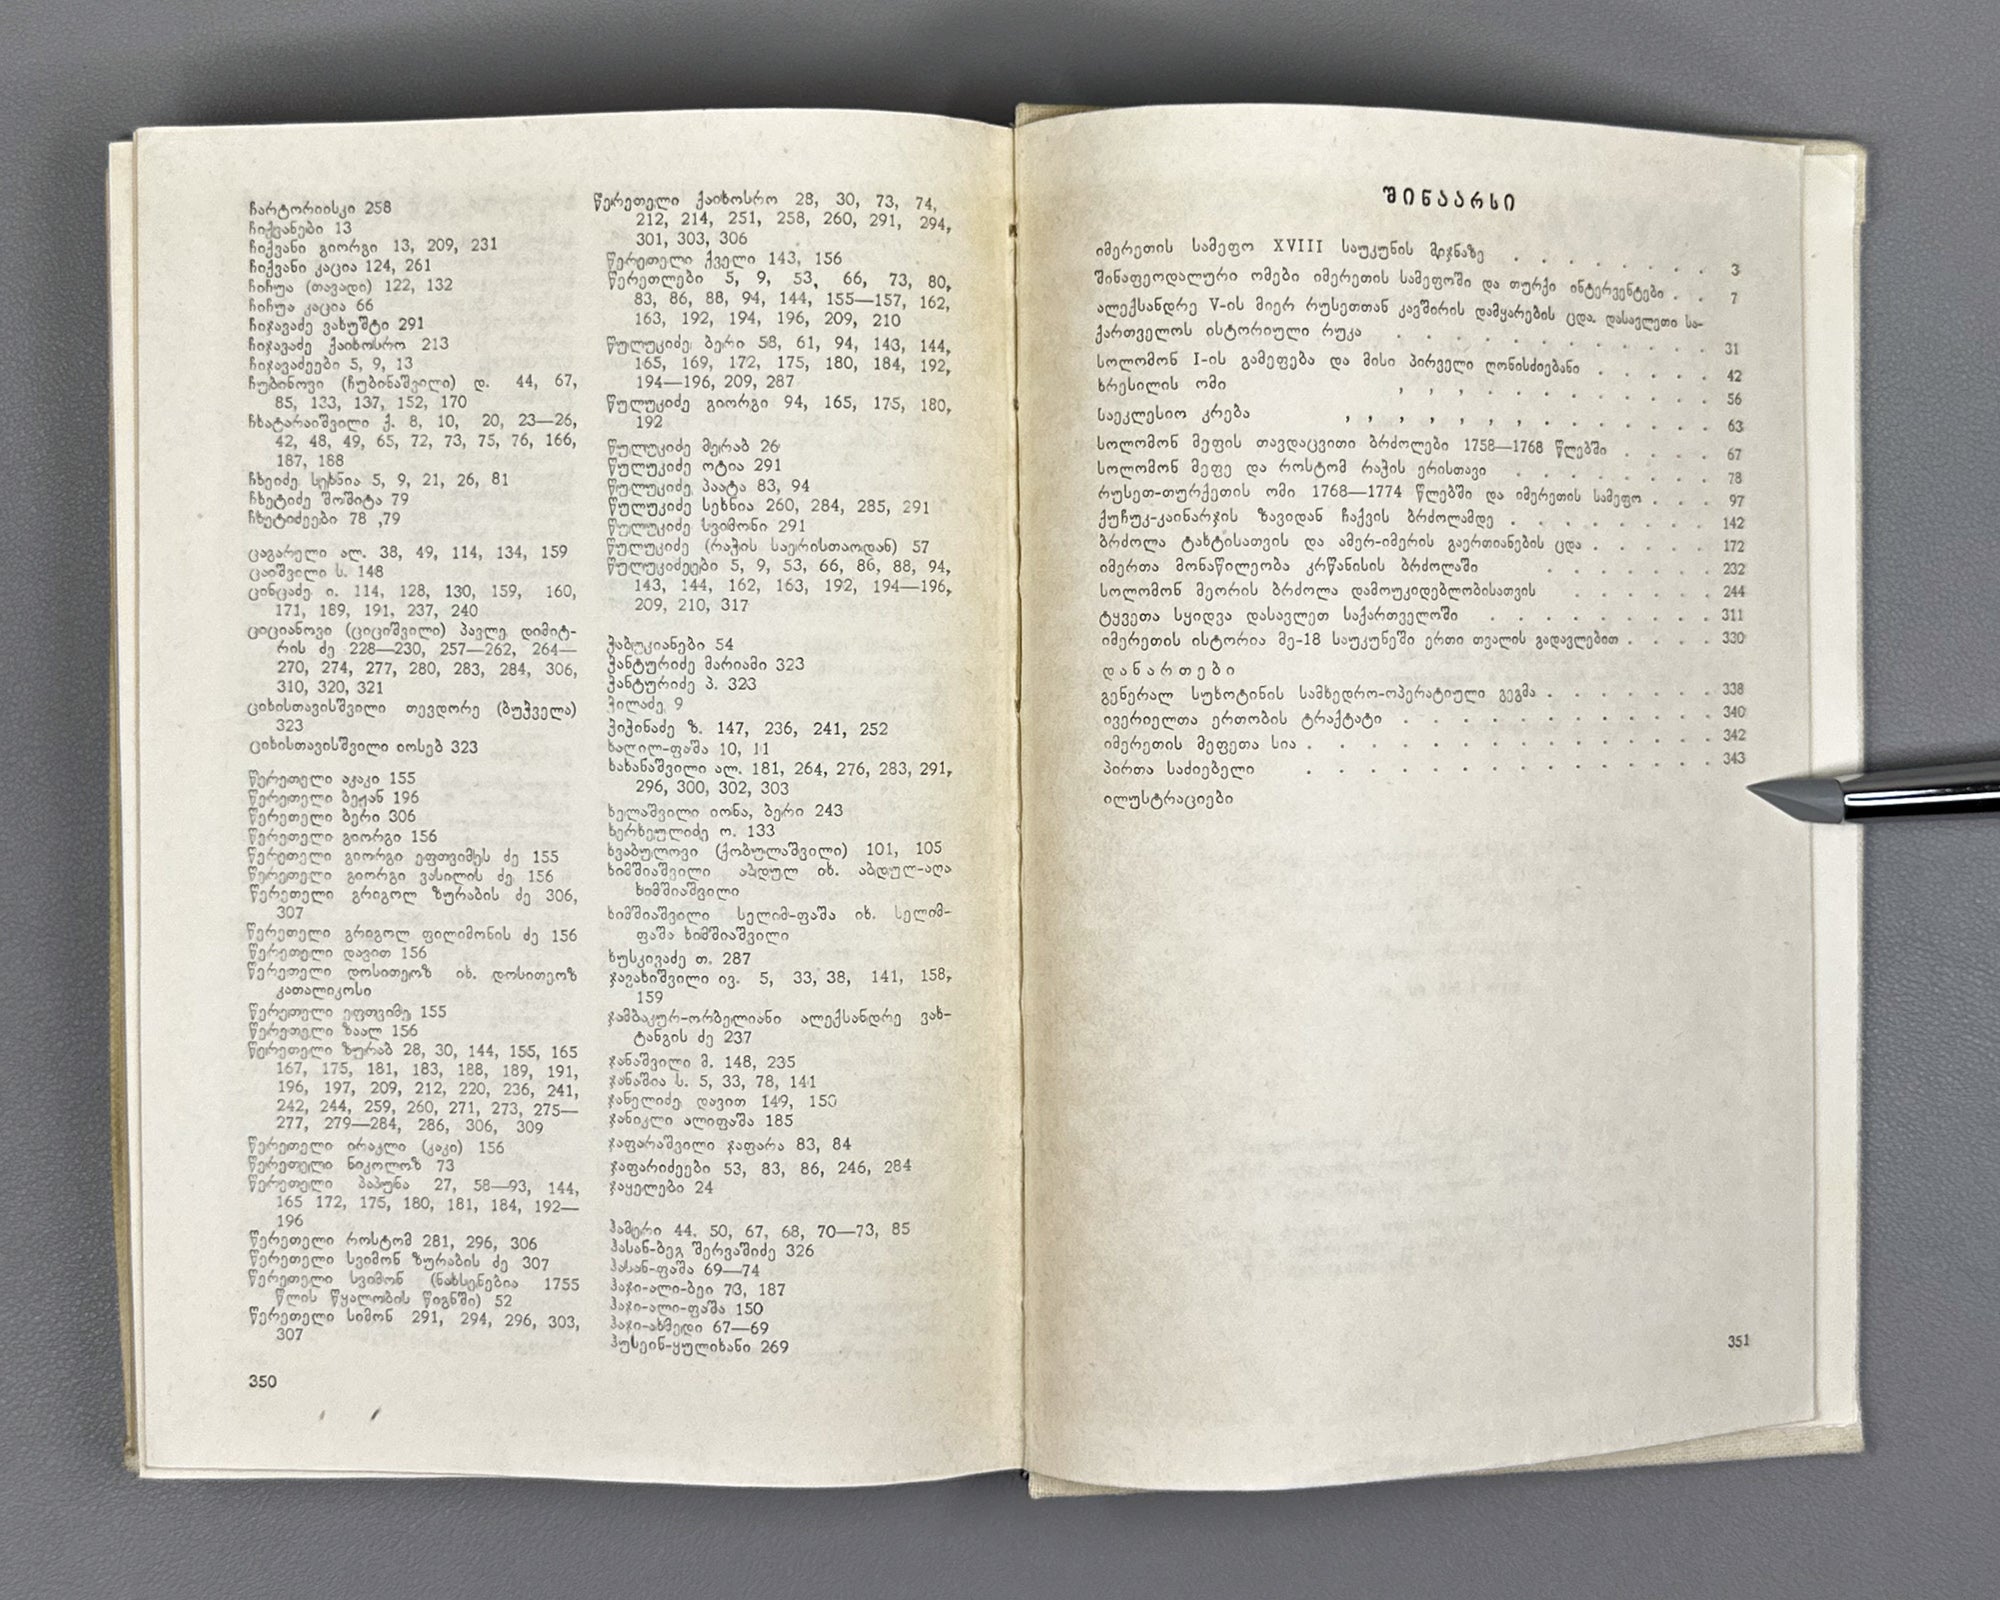 ჩარტორიისკი 258
ჩიქვანები 13
ჩიქვანი გიორგი 13, 209, 231
ჩიქვანი კაცია 124, 261
ჩიჩუა (თავადი) 122, 132
ჩიჩუა კაცია 66
ჩიჯავაძე ვახუშტი 291
ჩიჯავაძე ქაიხოსრო 213
ჩიჯავაძეები 5, 9, 13
ჩუბინოვი (ჩუბინაშვილი) დ. 44, 67,
85, 133, 137, 152, 170
ჩხატარაიშვილი ქ. 8, 10, 20, 23—26,
42, 48, 49, 65, 72, 73, 75, 76, 166,
187, 188
ჩხეიძე სეხნია 5, 9, 21, 26, 81
ჩხეტიძე შოშიტა 79
ჩხეტიძეები 78 ,79
ცაგარელი ალ. 38, 49, 114, 134, 159
ცაიშვილი ს. 148
ცინცაძე ი. 114, 128, 130, 159, 160,
171, 189, 191, 237, 240
ციციანოვი (ციციშვილი) პავლე დიმიტ-
რის ძე 228—230, 257—262, 264—
270, 274, 277, 280, 283, 284, 306,
310, 320, 321
ციხისთავისშვილი თევდორე (ბუჭველა)
323
ციხისთავისშვილი იოსებ 323
წერეთელი აკაკი 155
წერეთელი ბეჟან 196
წერეთელი ბერი 306
წერეთელი გიორგი 156
წერეთელი გიორგი ეფთვიმეს ძე 155
წერეთელი გიორგი ვასილის ძე 156
წერეთელი გრიგოლ ზურაბის ძე 306,
307
წერეთელი გრიგოლ ფილიმონის ძე 156
წერეთელი დავით 156
წერეთელი დოსითეოზ იხ. დოსითეოზ
კათალიკოსი
წერეთელი ეფთვიმე 155
წერეთელი ზაალ 156
წერეთელი ზურაბ 28, 30, 144, 155, 165
167, 175, 181, 183, 188, 189, 191,
196, 197, 209, 212, 220, 236, 241,
242, 244, 259, 260, 271, 273, 275—
277, 279—284, 286, 306, 309
წერეთელი ირაკლი (კაკი) 156
წერეთელი ნიკოლოზ 73
წერეთელი პაპუნა 27, 58—93, 144,
165 172, 175, 180, 181, 184, 192—
196
წერეთელი როსტომ 281, 296, 306
წერეთელი სვიმონ ზურაბის ძე 307
წერეთელი სვიმონ (ნახსენებია 1755
წლის წყალობის წიგნში) 52
წერეთელი სიმონ 291, 294, 296, 303,
307
350
წერეთელი ქაიხოსრო 28, 30, 73, 74,
212, 214, 251, 258, 260, 291, 294,
301, 303, 306
წერეთელი ქველი 143, 156
წერეთლები 5, 9, 53, 66, 73, 80,
83, 86, 88, 94, 144, 155—157, 162,
163, 192, 194, 196, 209, 210
წულუკიძე ბერი 58, 61, 94, 143, 144,
165, 169, 172, 175, 180, 184, 192,
194—196, 209, 287
წულუკიძე გიორგი 94, 165, 175, 180,
192
წულუკიძე მერაბ 26
წულუკიძე ოტია 291
წულუკიძე პაატა 83, 94
წულუკიძე სეხნია 260, 284, 285, 291
წულუკიძე სვიმონი 291
წულუკიძე (რაჭის საერისთაოდან) 57
წულუკიძეები 5, 9, 53, 66, 86, 88, 94,
143, 144, 162, 163, 192, 194—196,
209, 210, 317
ჭაბუკიანები 54
ჭანტურიძე მარიამი 323
ჭანტურიძე პ. 323
ჭილაძე 9
ჭიჭინაძე ზ. 147, 236, 241, 252
ხალილ-ფაშა 10, 11
ხახანაშვილი ალ. 181, 264, 276, 283, 291,
296, 300, 302, 303
ხელაშვილი იონა, ბერი 243
ხერხეულიძე ო. 133
ხვაბულოვი (ქობულაშვილი) 101, 105
ხიმშიაშვილი აბდულ იხ. აბდულ-აღა
ხიმშიაშვილი
ხიმშიაშვილი სელიმ-ფაშა იხ. სელიმ-
ფაშა ხიმშიაშვილი
ხუსკივაძე თ. 287
ჯავახიშვილი ივ. 5, 33, 38, 141, 158,
159
ჯამბაკურ-ორბელიანი ალექსანდრე ვახ-
ტანგის ძე 237
ჯანაშვილი მ. 148, 235
ჯანაშია ს. 5, 33, 78, 141
ჯანელიძე დავით 149, 150
ჯანიკლი ალიფაშა 185
ჯაფარაშვილი ჯაფარა 83, 84
ჯაფარიძეები 53, 83, 86, 246, 284
ჯაყელები 24
ჰამერი 44, 50, 67, 68, 70—73, 85
ჰასან-ბეგ შერვაშიძე 326
ჰასან-ფაშა 69—74
ჰაჯი-ალი-ბეი 73, 187
ჰაჯი-ალი-ფაშა 150
ჰაჯი-ახმედი 67—69
ჰუსეინ-ყულიხანი 269
შინაარსი
იმერეთის სამეფო XVIII საუკუნის მიჯნაზე . . . . . . . . 3
შინაფეოდალური ომები იმერეთის სამეფოში და თურქი ინტერვენტები . . 7
ალექსანდრე V-ის მიერ რუსეთთან კავშირის დამყარების ცდა. დასავლეთი სა-
ქართველოს ისტორიული რუკა . . . . . . . . . . . . 31
სოლომონ I-ის გამეფება და მისი პირველი ღონისძიებანი . . . . . 42
ხრესილის ომი , , , . . . . . . . . . 56
საეკლესიო კრება , , , , , , , , . . . . . . . 63
სოლომონ მეფის თავდაცვითი ბრძოლები 1758—1768 წლებში . . . . 67
სოლომონ მეფე და როსტომ რაჭის ერისთავი . . . . . . . . 78
რუსეთ-თურქეთის ომი 1768—1774 წლებში და იმერეთის სამეფო . . . 97
ქუჩუკ-კაინარჯის ზავიდან ჩაქვის ბრძოლამდე . . . . . . . . 142
ბრძოლა ტახტისათვის და ამერ-იმერის გაერთიანების ცდა . . . . . 172
იმერთა მონაწილეობა კრწანისის ბრძოლაში . . . . . . . 232
სოლომონ მეორის ბრძოლა დამოუკიდებლობისათვის . . . . . . 244
ტყვეთა სყიდვა დასავლეთ საქართველოში . . . . . . . . . 311
იმერეთის ისტორია მე-18 საუკუნეში ერთი თვალის გადავლებით . . . . 330
დანართები
გენერალ სუხოტინის სამხედრო-ოპერატიული გეგმა . . . . . . . 338
ივერიელთა ერთობის ტრაქტატი . . . . . . . . . . . . 340
იმერეთის მეფეთა სია . . . . . . . . . . . . . . . 342
პირთა საძიებელი . . . . . . . . . . . . . . . 343
ილუსტრაციები
351